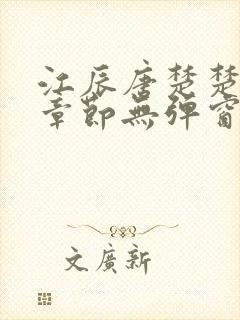 江辰唐楚楚
章節無彈窗
文廣新